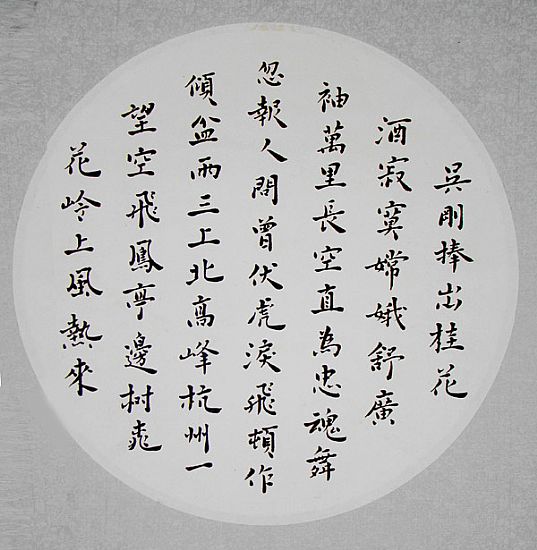 吳剛捧出桂花
酒寂寞嫦娥舒廣
袖萬里長空直為忠魂舞
忽報人間曾伏虎淚飛頓作
傾盆雨三上北高峰杭州一
望空飛鳳亭邊樹桃
花岭上風熱來